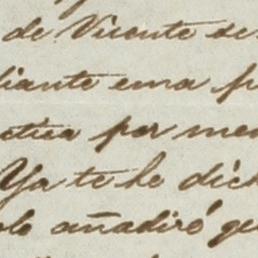 de Vicente de
diante una p
ctica por me
Ya te he dich
olo añadiré qu